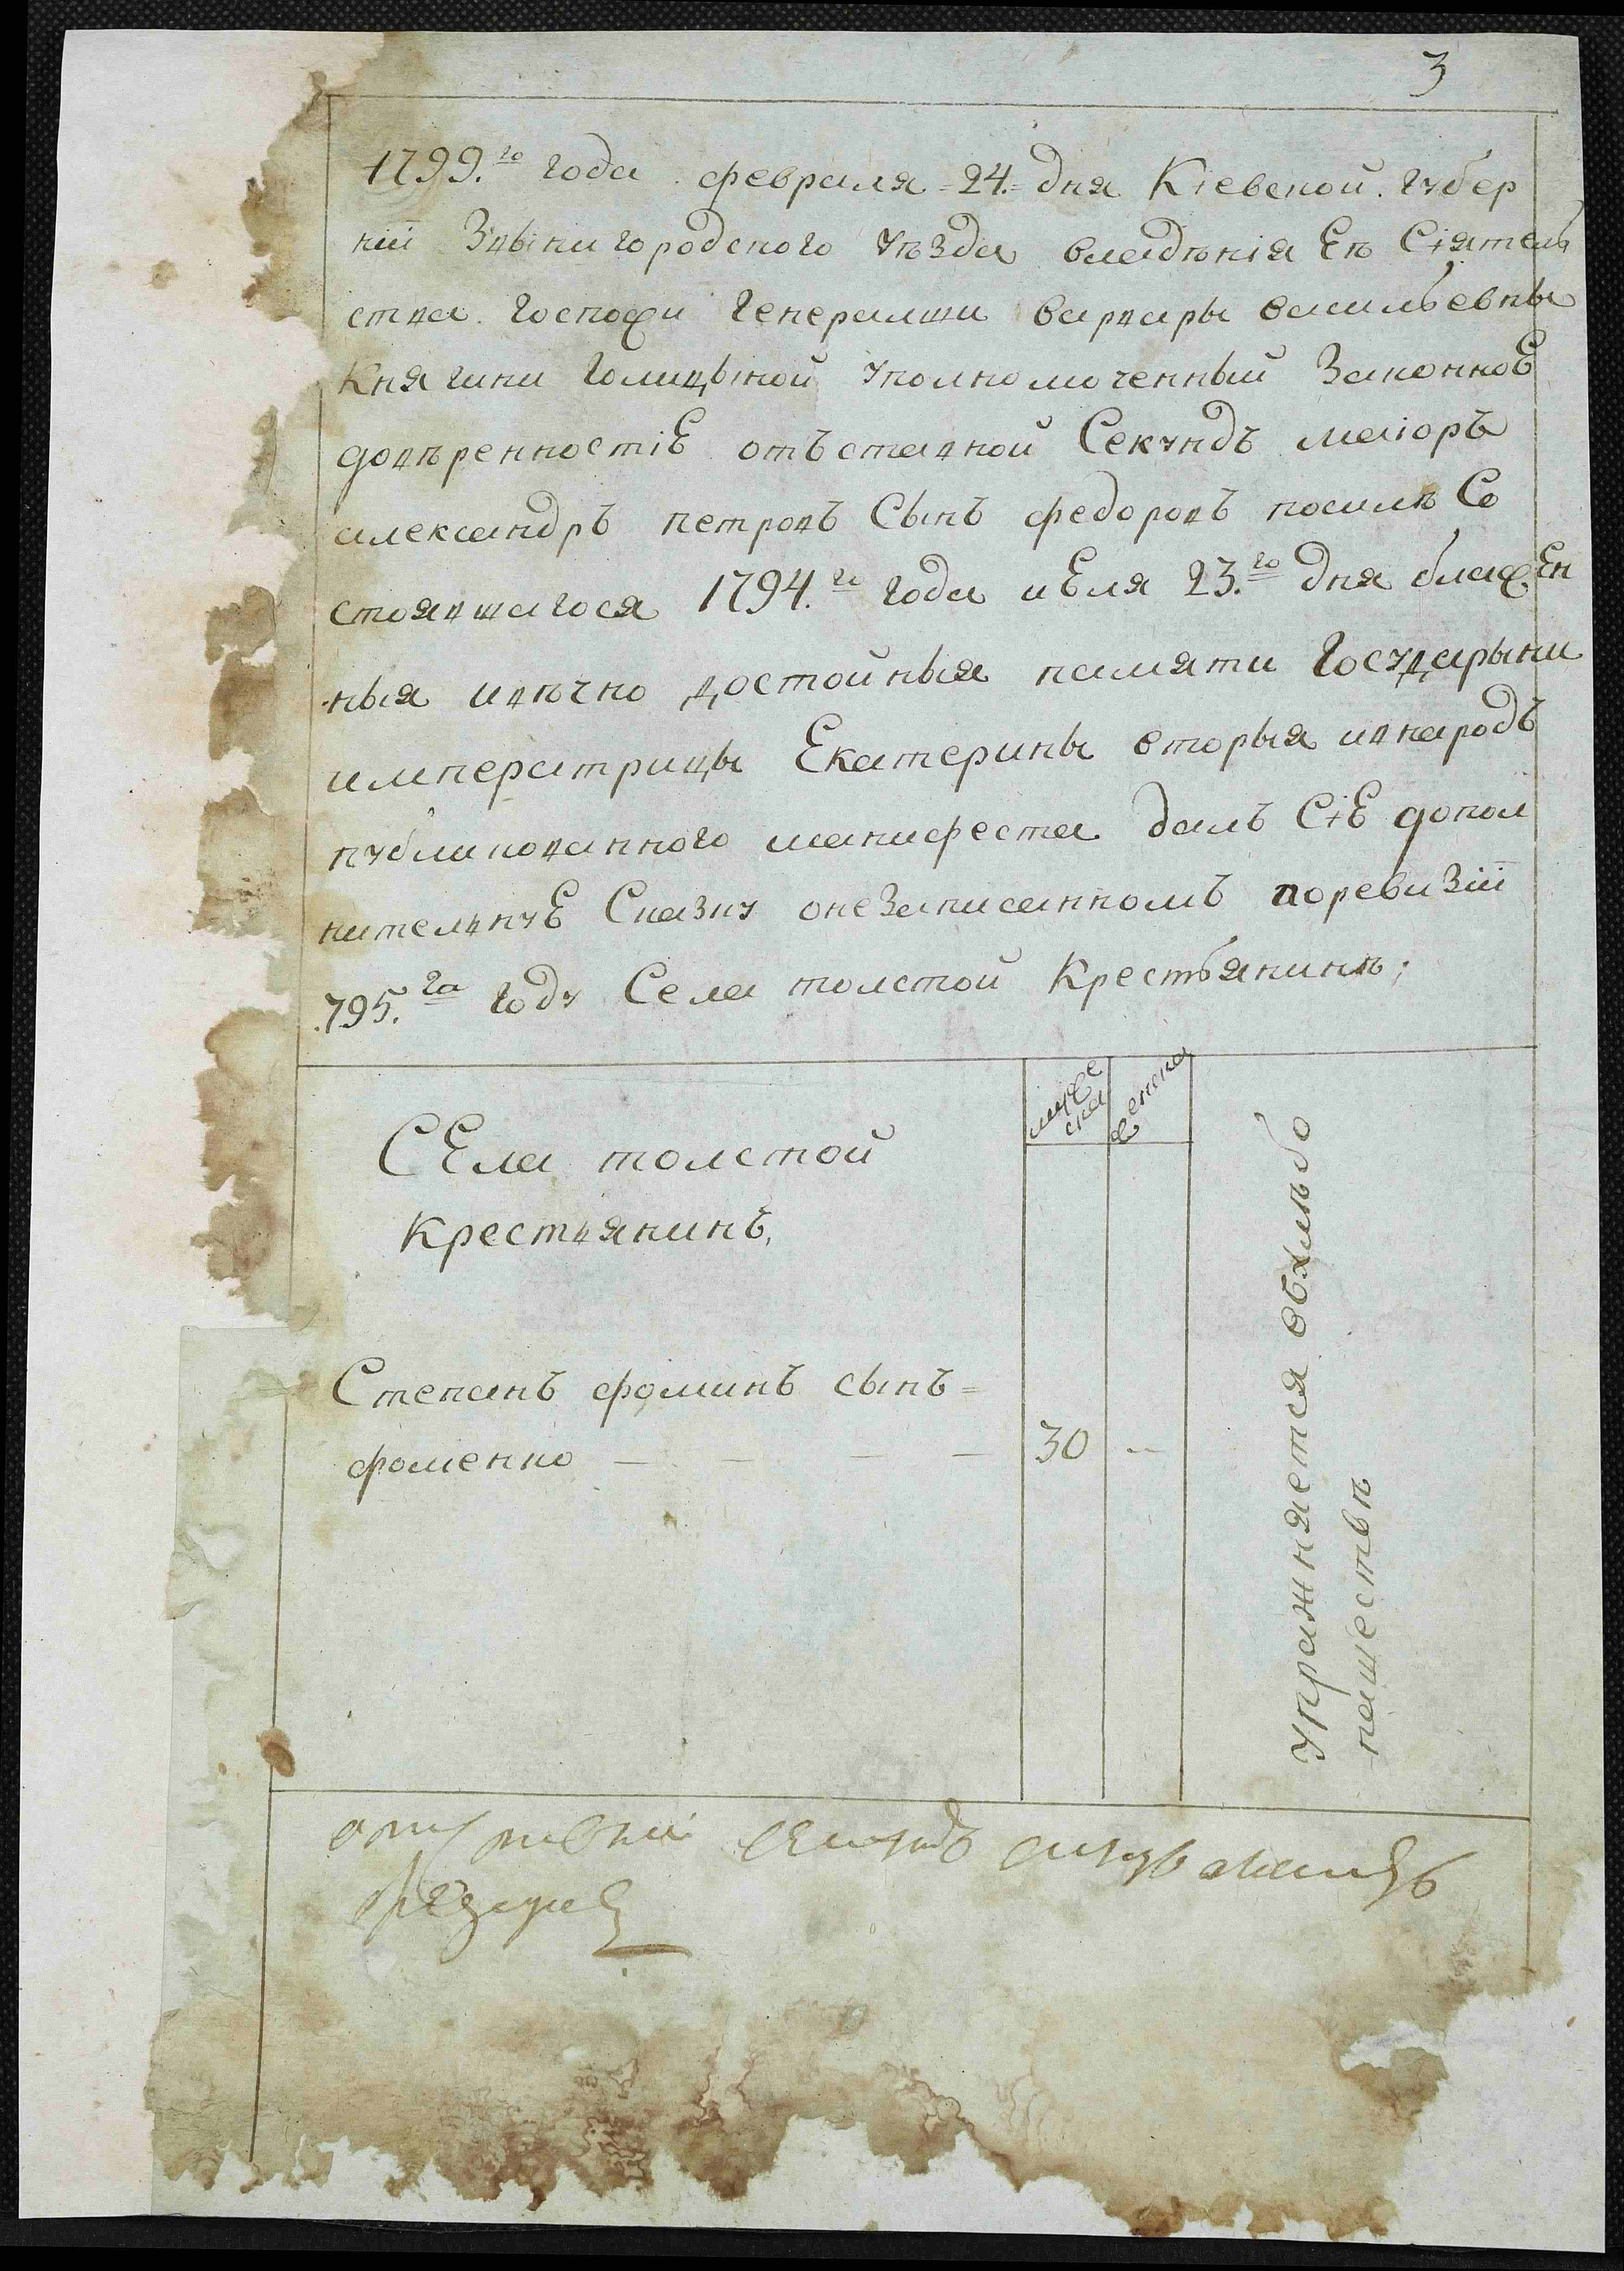 3
1799.го года февраля =24.= дня Кіевской губер
ніи Звѣнигородского уѣзда владѣнія Ея Сіятель
ства госпожи генеральши варвары васильевны
Княгини голицыной уполномоченный Законною
довѣренностію отъставной Секундъ маіоръ
александръ петровъ Сынъ федоровъ посилѣ Со
стоявшагося 1794.го года июля 23.го дня блажен
ныя ивѣчно достойныя памяти Государыни
императрицы Екатерины вторыя ивнародъ
публикованного манифеста далъ Сію допол
нительную Сказку онезаписанномъ поревизіи
795.го году Села толстой Крестьянинѣ;
мужеска
женска
СЕла толстой
крестьянинъ,
Степанъ фоминъ сынъ =
фоменко — — — — 30 --
Упражняется въхлѣбо
пашествѣ
секундъ